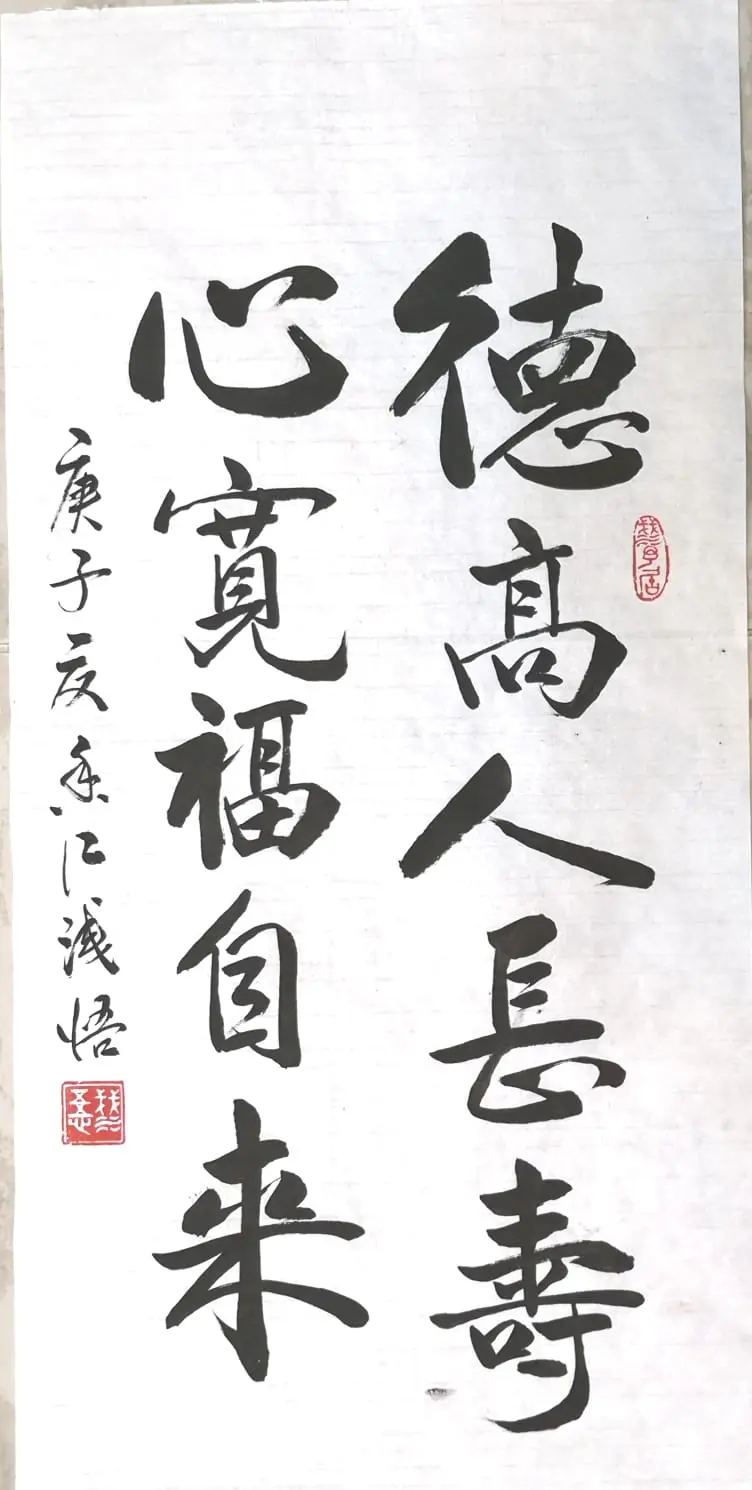 德高人長壽
心寬福自来
庚子夏 浅悟